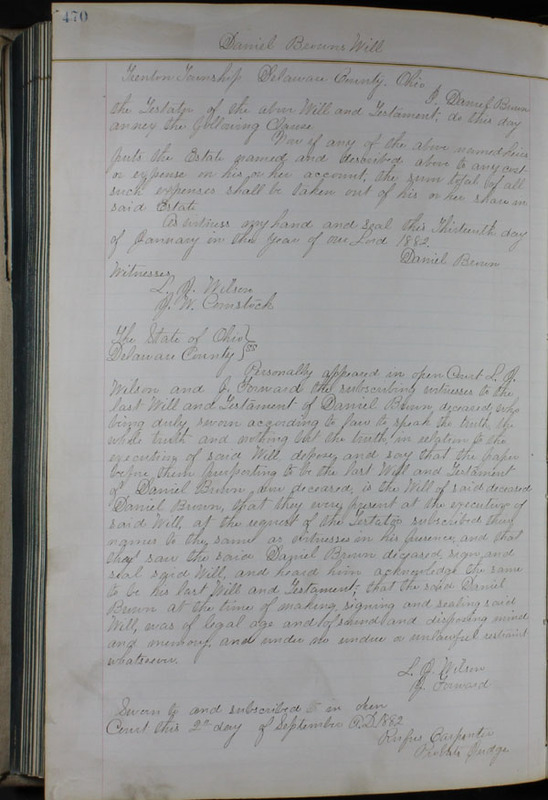 470
Daniel Browns Will
Trenton Township Delaware County. Ohio
I, Daniel Brown
the Testator of the above Will and Testament do this day
annex the following Clause
Now if any of the above named heirs
puts the Estate named and described above to any cost
or expense on his or her account, the sum total of all
such expenses shall be taken out of his or her share in
said Estate
As witness my hand and seal this Thirteenth day
of January in the Year of our Lord 1882.
Daniel Brown
Witnesses,
L. Wilson
W. Comstock
The State of Ohio }
Delaware County } SS
Personally appeared in open Court L.
Wilson and Forward the subscribing witnesses to the
last Will and Testament of Daniel Brown, deceased, who
being duly sworn according to law to speak the truth the
whole truth and nothing but the truth, in relation to the
execution of said Will depose, and say that the paper
before them purporting to be the last Will and Testament
of Daniel Brown, now deceased, is the Will of said deceased
Daniel Brown, that they were present at the execution of
said Will, at the request of the Testator subscribed their
names to the same as witnesses in his presence, and that
they saw the said Daniel Brown deceased, sign, and
seal said Will, and heard him acknowledge the same
to be his last Will and Testament; that the said Daniel
Brown at the time of making, signing and sealing said
Will, was of legal age and of sound and disposing mind
and memory, and under no undue or unlawful restraint
whatsoever.
L. Wilson
Forward
Sworn to and subscribed to in open
Court this 2nd day of September A.D. 1882
Rufus Carpenter
Probate Judge